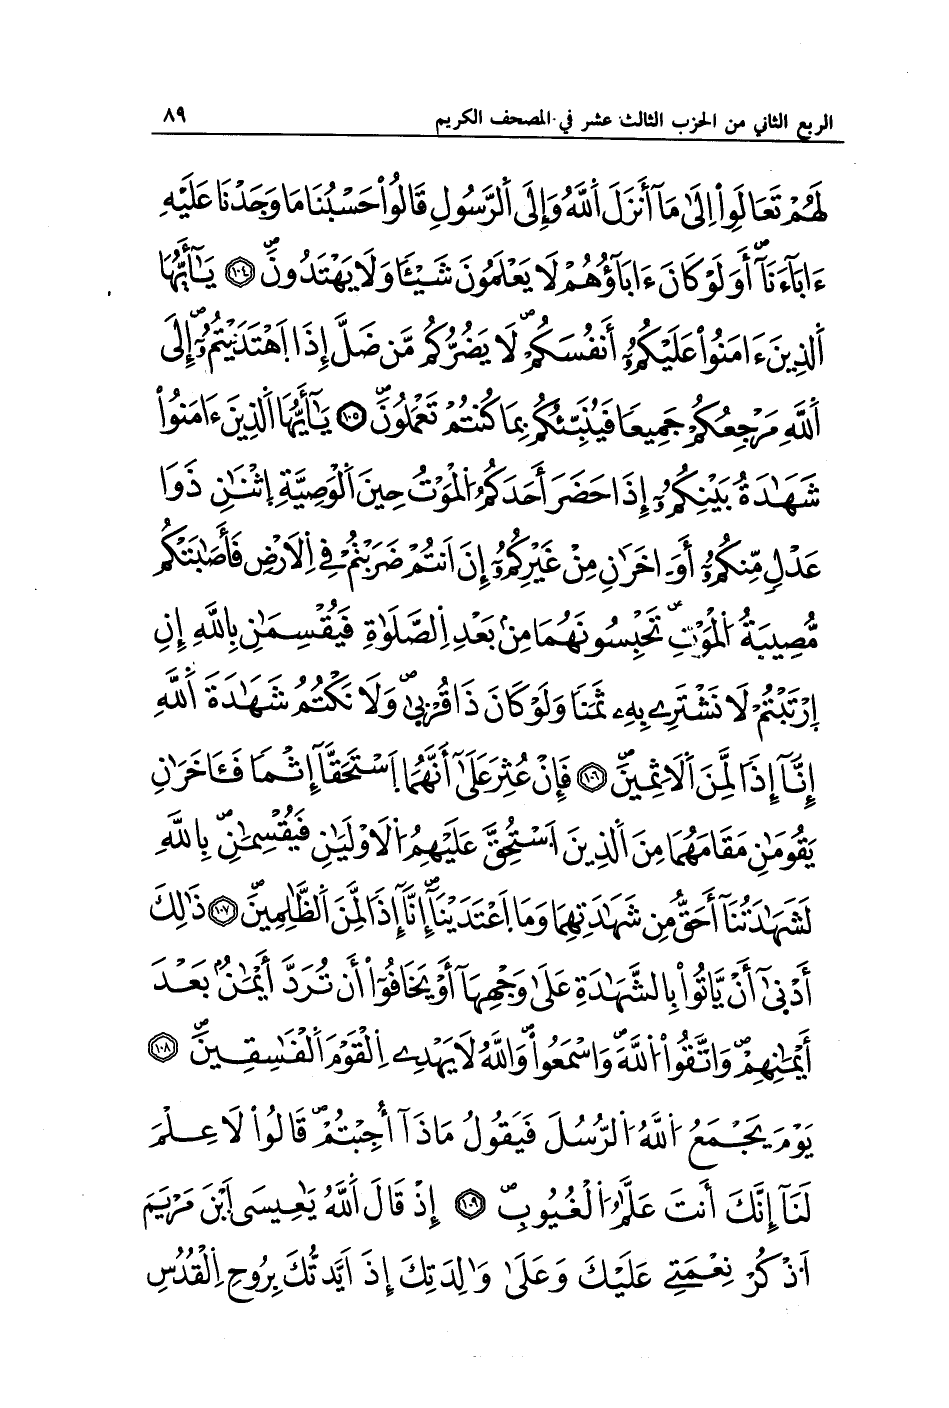 الربع الثاني من الحزب الثالث عشر في المصحف الكريم ٨٩
لَهُمْ تَعَالَوِاْ اِلَىٰ مَآ أَنزَلَ اَ۬للَّهُ وَإِلَى اَ۬لرَّسُولِ قَالُواْ حَسْبُنَا مَا وَجَدْنَا عَلَيْهِ
ءَابَآءَنَآۖ أَوَلَوْ كَانَ ءَابَآؤُهُمْ لَا يَعْلَمُونَ شَيْـٔاً وَلَا يَهْتَدُونَۖ ۝١٠٤ يَـٰٓأَيُّهَا
اَ۬لذِينَ ءَامَنُواْ عَلَيْكُمُۥٓ أَنفُسَكُمْۖ لَا يَضُرُّكُم مَّن ضَلَّ إِذَا اَ۪هْتَدَيْتُمُۥٓۖ إِلَى
اَ۬للَّهِ مَرْجِعُكُمْ جَمِيعاً فَيُنَبِّئُكُم بِمَا كُنتُمْ تَعْمَلُونَۖ ۝١٠٥ يَـٰٓأَيُّهَا اَ۬لذِينَ ءَامَنُواْ
شَهَـٰدَةُ بَيْنِكُمُۥٓ إِذَا حَضَرَ أَحَدَكُمُ اُ۬لْمَوْتُ حِينَ اَ۬لْوَصِيَّةِ اِ۪ثْنَـٰنِ ذَوَا
عَدْلٍ مِّنكُمُۥٓ أَوَ اٰخَرَٰنِ مِنْ غَيْرِكُمُۥٓ إِنَ اَنتُمْ ضَرَبْتُمْ فِے اِ۬لَارْضِ فَأَصَـٰبَتْكُم
مُّصِيبَةُ اُ۬لْمَوْتِۖ تَحْبِسُونَهُمَا مِنۢ بَعْدِ اِ۬لصَّلَوٰةِ فَيُقْسِمَـٰنِ بِاللَّهِ إِنِ
اِ۪رْتَبْتُمْ لَا نَشْتَرِے بِهِۦ ثَمَناً وَلَوْ كَانَ ذَا قُرْبىٰۖ وَلَا نَكْتُمُ شَهَـٰدَةَ اَ۬للَّهِ
إِنَّآ إِذاً لَّمِنَ اَ۬لَاثِمِينَۖ ۝١٠٦ فَإِنْ عُثِرَ عَلَىٰٓ أَنَّهُمَا اَ۪سْتَحَقَّآ إِثْماً فَـَٔاخَرَٰنِ
يَقُومَـٰنِ مَقَامَهُمَا مِنَ اَ۬لذِينَ اَ۟سْتُحِقَّ عَلَيْهِمُ اُ۬لَاوْلَيَـٰنِ فَيُقْسِمَـٰنِۖ بِاللَّهِ
لَشَهَـٰدَتُنَآ أَحَقُّ مِن شَهَـٰدَتِهِمَا وَمَا اَ۪عْتَدَيْنَآۖ إِنَّآ إِذاً لَّمِنَ اَ۬لظَّـٰلِمِينَۖ ۝١٠٧ ذَٰلِكَ
أَدْنىٰٓ أَنْ يَّاتُواْ بِالشَّهَـٰدَةِ عَلَىٰ وَجْهِهَآ أَوْ يَخَافُوٓاْ أَن تُرَدَّ أَيْمَـٰنُۢ بَعْدَ
أَيْمَـٰنِهِمْۖ وَاتَّقُواْ اُ۬للَّهَۖ وَاسْمَعُواْۖ وَاللَّهُ لَا يَهْدِے اِ۬لْقَوْمَ اَ۬لْفَـٰسِقِينَۖ ۝١٠٨
يَوْمَ يَجْمَعُ اُ۬للَّهُ اُ۬لرُّسُلَ فَيَقُولُ مَاذَآ أُجِبْتُمْۖ قَالُواْ لَا عِلْمَ
لَنَآ إِنَّكَ أَنتَ عَلَّـٰمُ اُ۬لْغُيُوبِۖ ۝١٠٩ إِذْ قَالَ اَ۬للَّهُ يَـٰعِيسَى اَ۪بْنَ مَرْيَمَ
اَ۟ذْكُرْ نِعْمَتِے عَلَيْكَ وَعَلَىٰ وَٰلِدَتِكَ إِذَ اَيَّدتُّكَ بِرُوحِ اِ۬لْقُدُسِ